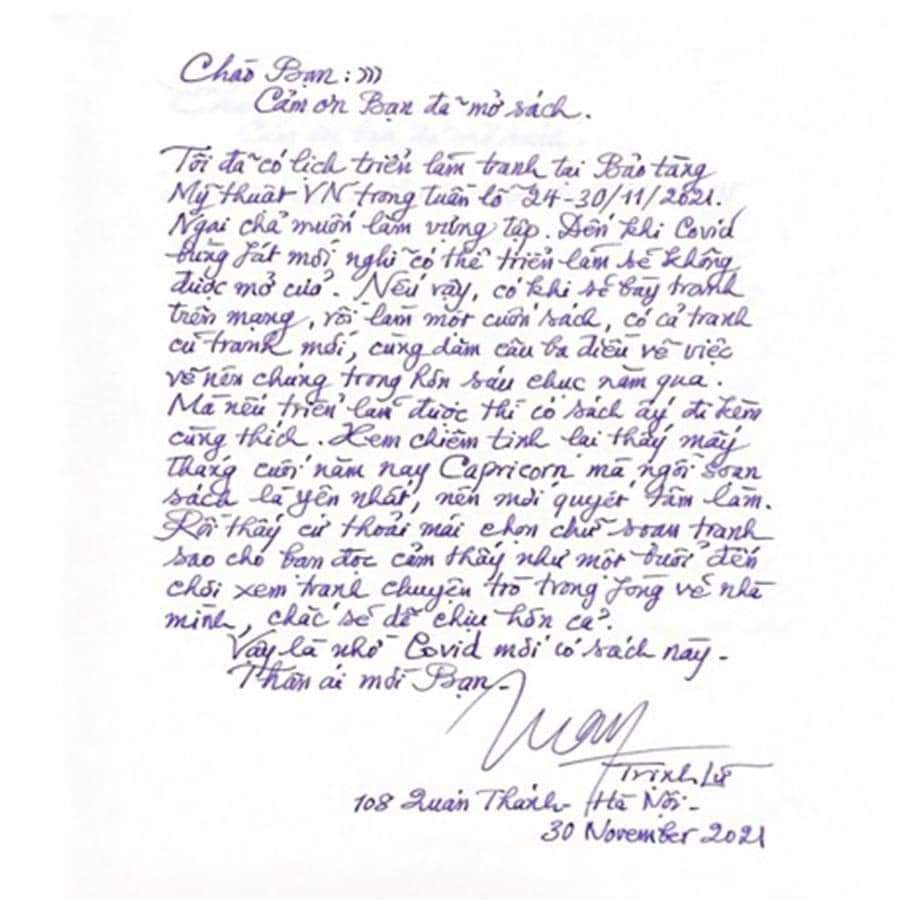 Chào Bạn :)))
Cảm ơn Bạn đã mở sách.
Tôi đã có lịch triển lãm tranh tại Bảo tàng
Mỹ thuật VN trong tuần lễ 24-30/11/2021.
Ngại chả muốn làm vựng tập. Đến khi Covid
bùng phát mới nghĩ có thể triển lãm sẽ không
được mở cửa. Nếu vậy, có khi sẽ bày tranh
trên mạng, rồi làm một cuốn sách, có cả tranh
cũ tranh mới, cùng dăm câu ba điều về việc
vẽ nên chúng trong hơn sáu chục năm qua.
Mà nếu triển lãm được thì có sách ấy đi kèm
cũng thích. Xem chiêm tinh lại thấy mấy
tháng cuối năm nay Capricorn mà ngồi soạn
sách là yên nhất, nên mới quyết tâm làm.
Rồi thấy cứ thoải mái chọn chữ soạn tranh
sao cho bạn đọc cảm thấy như một buổi đến
chơi xem tranh chuyện trò trong phòng vẽ nhà
mình, chắc sẽ dễ chịu hơn cả.
Vậy là nhờ Covid mới có sách này -
Thân ái mời Bạn -
Trịnh Lữ
108 Quán Thánh - Hà Nội -
30 November 2021